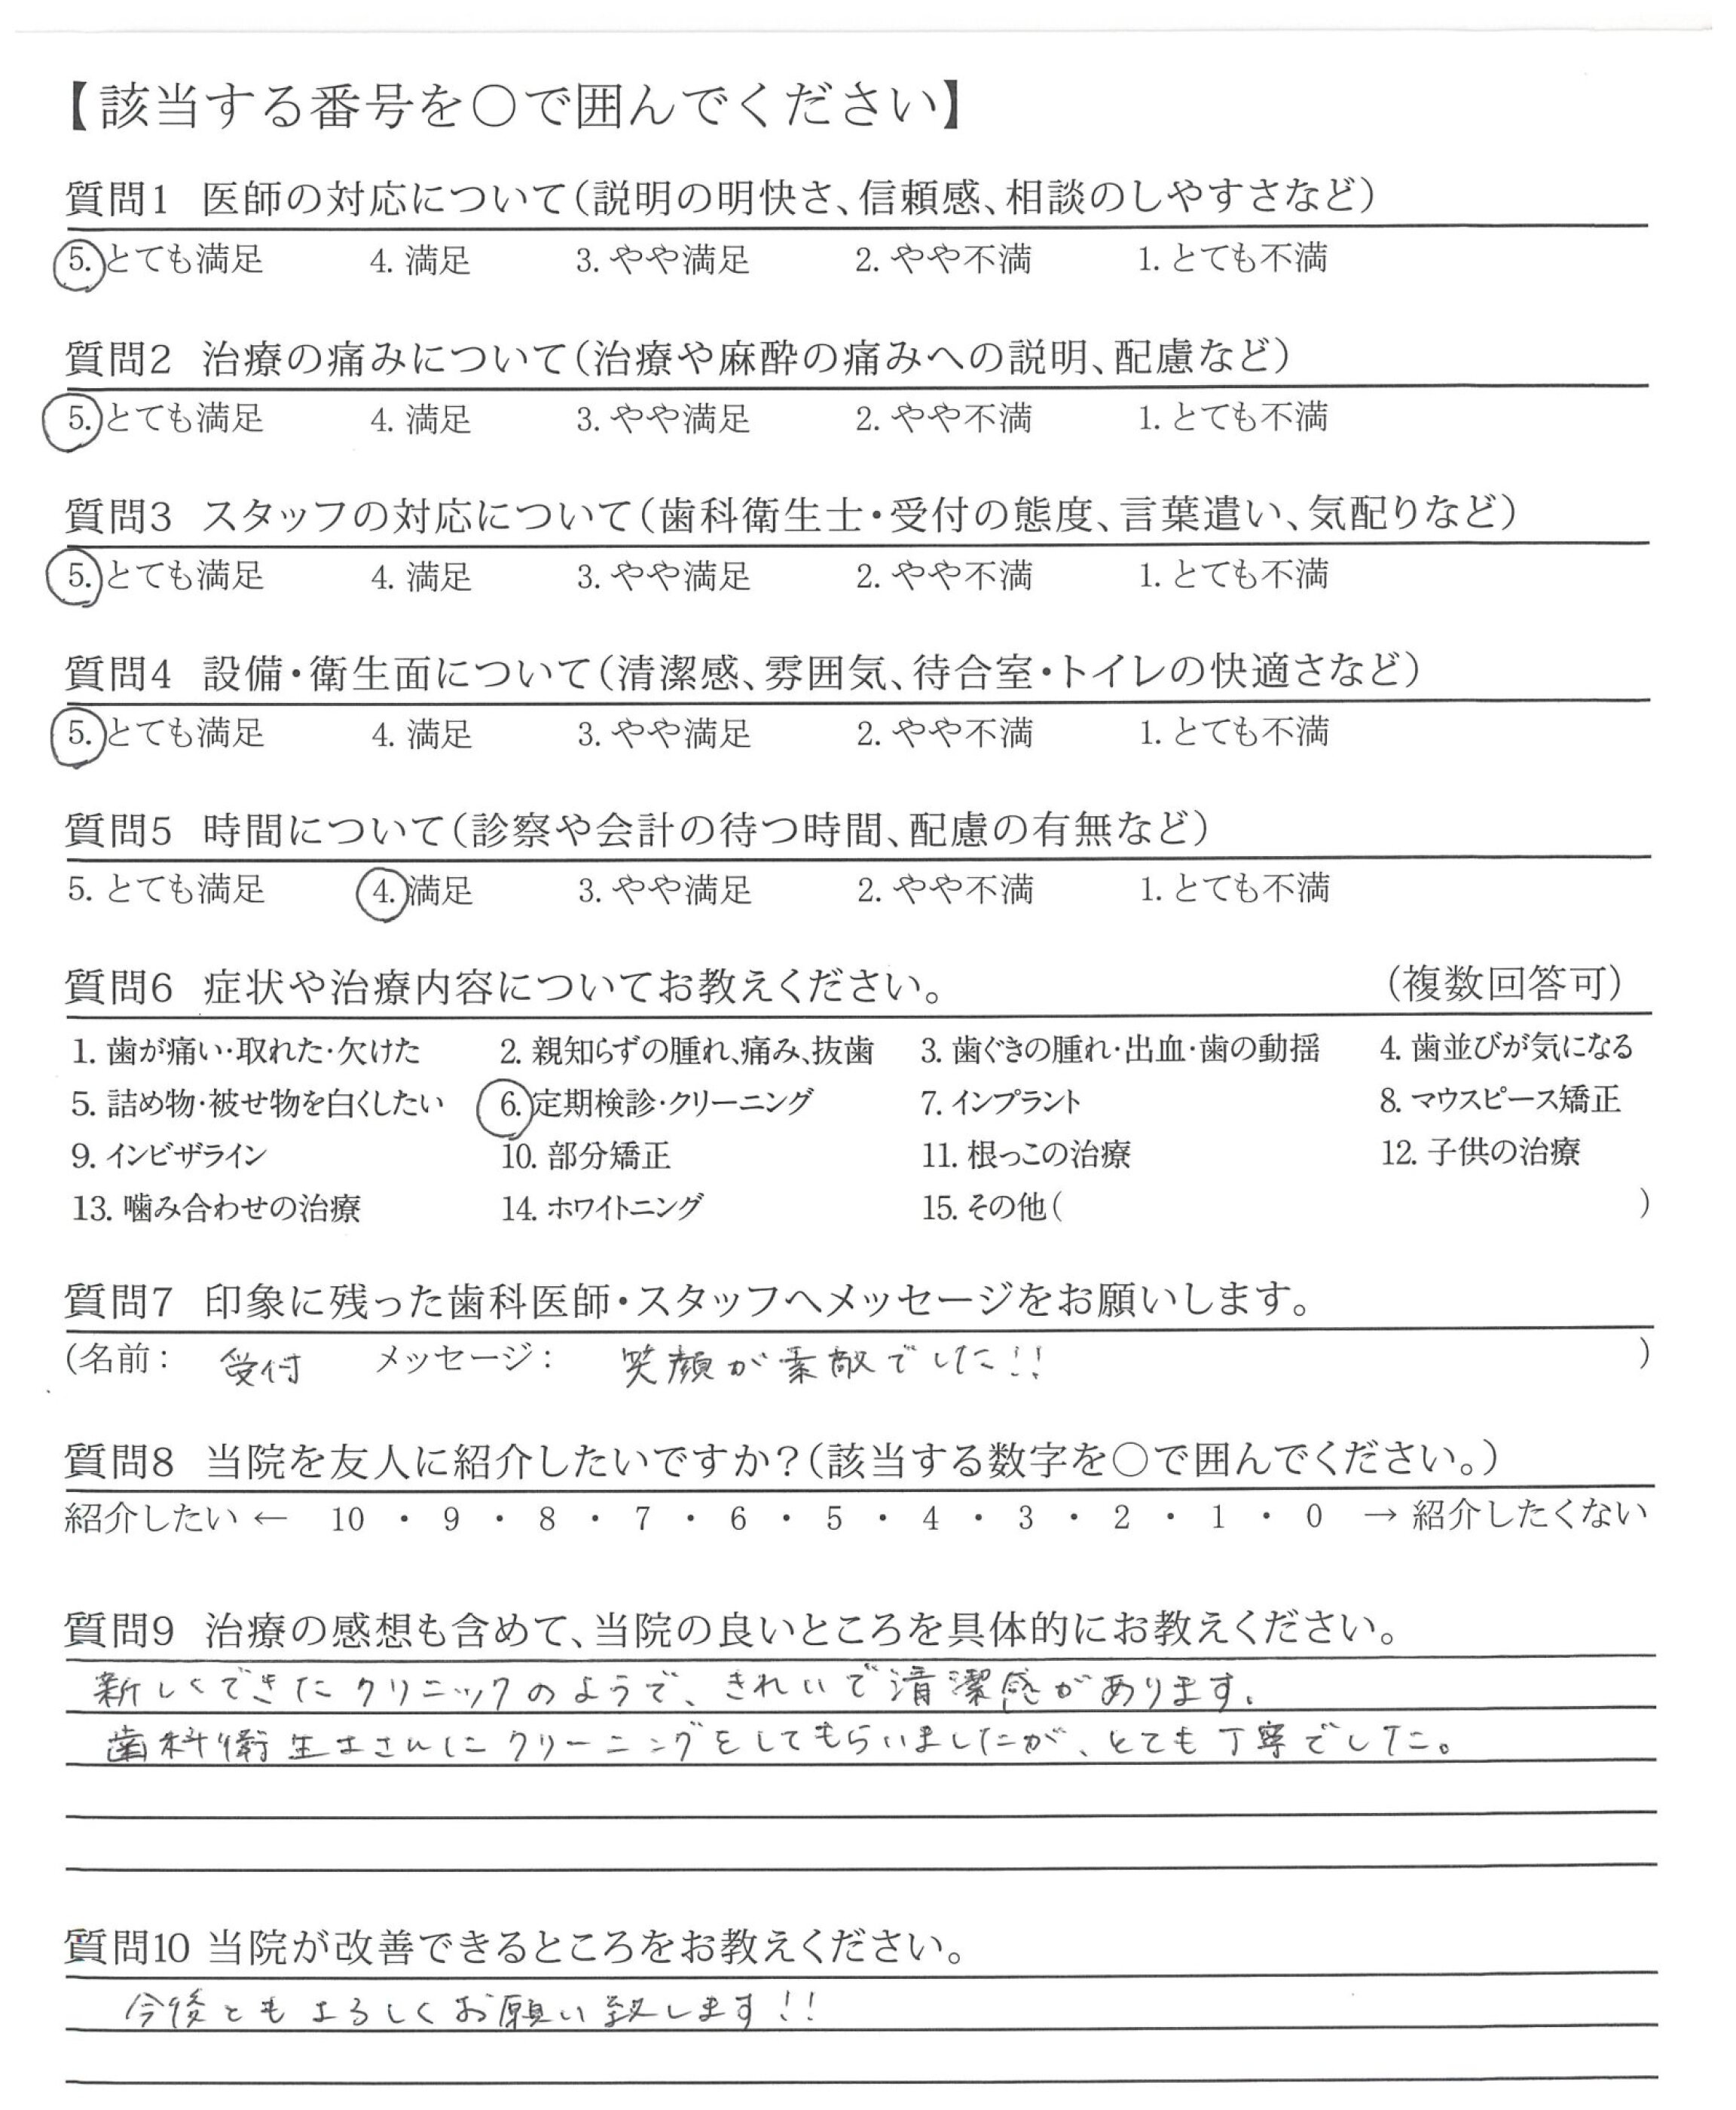 【該当する番号を○で囲んでください】
質問1 医師の対応について(説明の明快さ、信頼感、相談のしやすさなど)
5. とても満足 4. 満足 3. やや満足 2. やや不満 1. とても不満
質問2 治療の痛みについて(治療や麻酔の痛みへの説明、配慮など)
5. とても満足 4. 満足 3. やや満足 2. やや不満 1. とても不満
質問3 スタッフの対応について(歯科衛生士・受付の態度、言葉遣い、気配りなど)
5. とても満足 4. 満足 3. やや満足 2. やや不満 1. とても不満
質問4 設備・衛生面について(清潔感、雰囲気、待合室・トイレの快適さなど)
5. とても満足 4. 満足 3. やや満足 2. やや不満 1. とても不満
質問5 時間について(診察や会計の待つ時間、配慮の有無など)
5. とても満足 4. 満足 3. やや満足 2. やや不満 1. とても不満
質問6 症状や治療内容についてお教えください。 (複数回答可)
1. 歯が痛い・取れた・欠けた 2. 親知らずの腫れ、痛み、抜歯 3. 歯ぐきの腫れ・出血・歯の動揺 4. 歯並びが気になる
5. 詰め物・被せ物を白くしたい 6. 定期検診・クリーニング 7. インプラント 8. マウスピース矯正
9. インビザライン 10. 部分矯正 11. 根っこの治療 12. 子供の治療
13. 噛み合わせの治療 14. ホワイトニング 15. その他( )
質問7 印象に残った歯科医師・スタッフへメッセージをお願いします。
(名前: 受付 メッセージ: 笑顔が素敵でした!! )
質問8 当院を友人に紹介したいですか?(該当する数字を○で囲んでください。)
紹介したい ← 10 ・ 9 ・ 8 ・ 7 ・ 6 ・ 5 ・ 4 ・ 3 ・ 2 ・ 1 ・ 0 → 紹介したくない
質問9 治療の感想も含めて、当院の良いところを具体的にお教えください。
新しくできたクリニックのようで、きれいで清潔感があります。
歯科衛生士さんにクリーニングをしてもらいましたが、とても丁寧でした。
質問10 当院が改善できるところをお教えください。
今後ともよろしくお願い致します!!